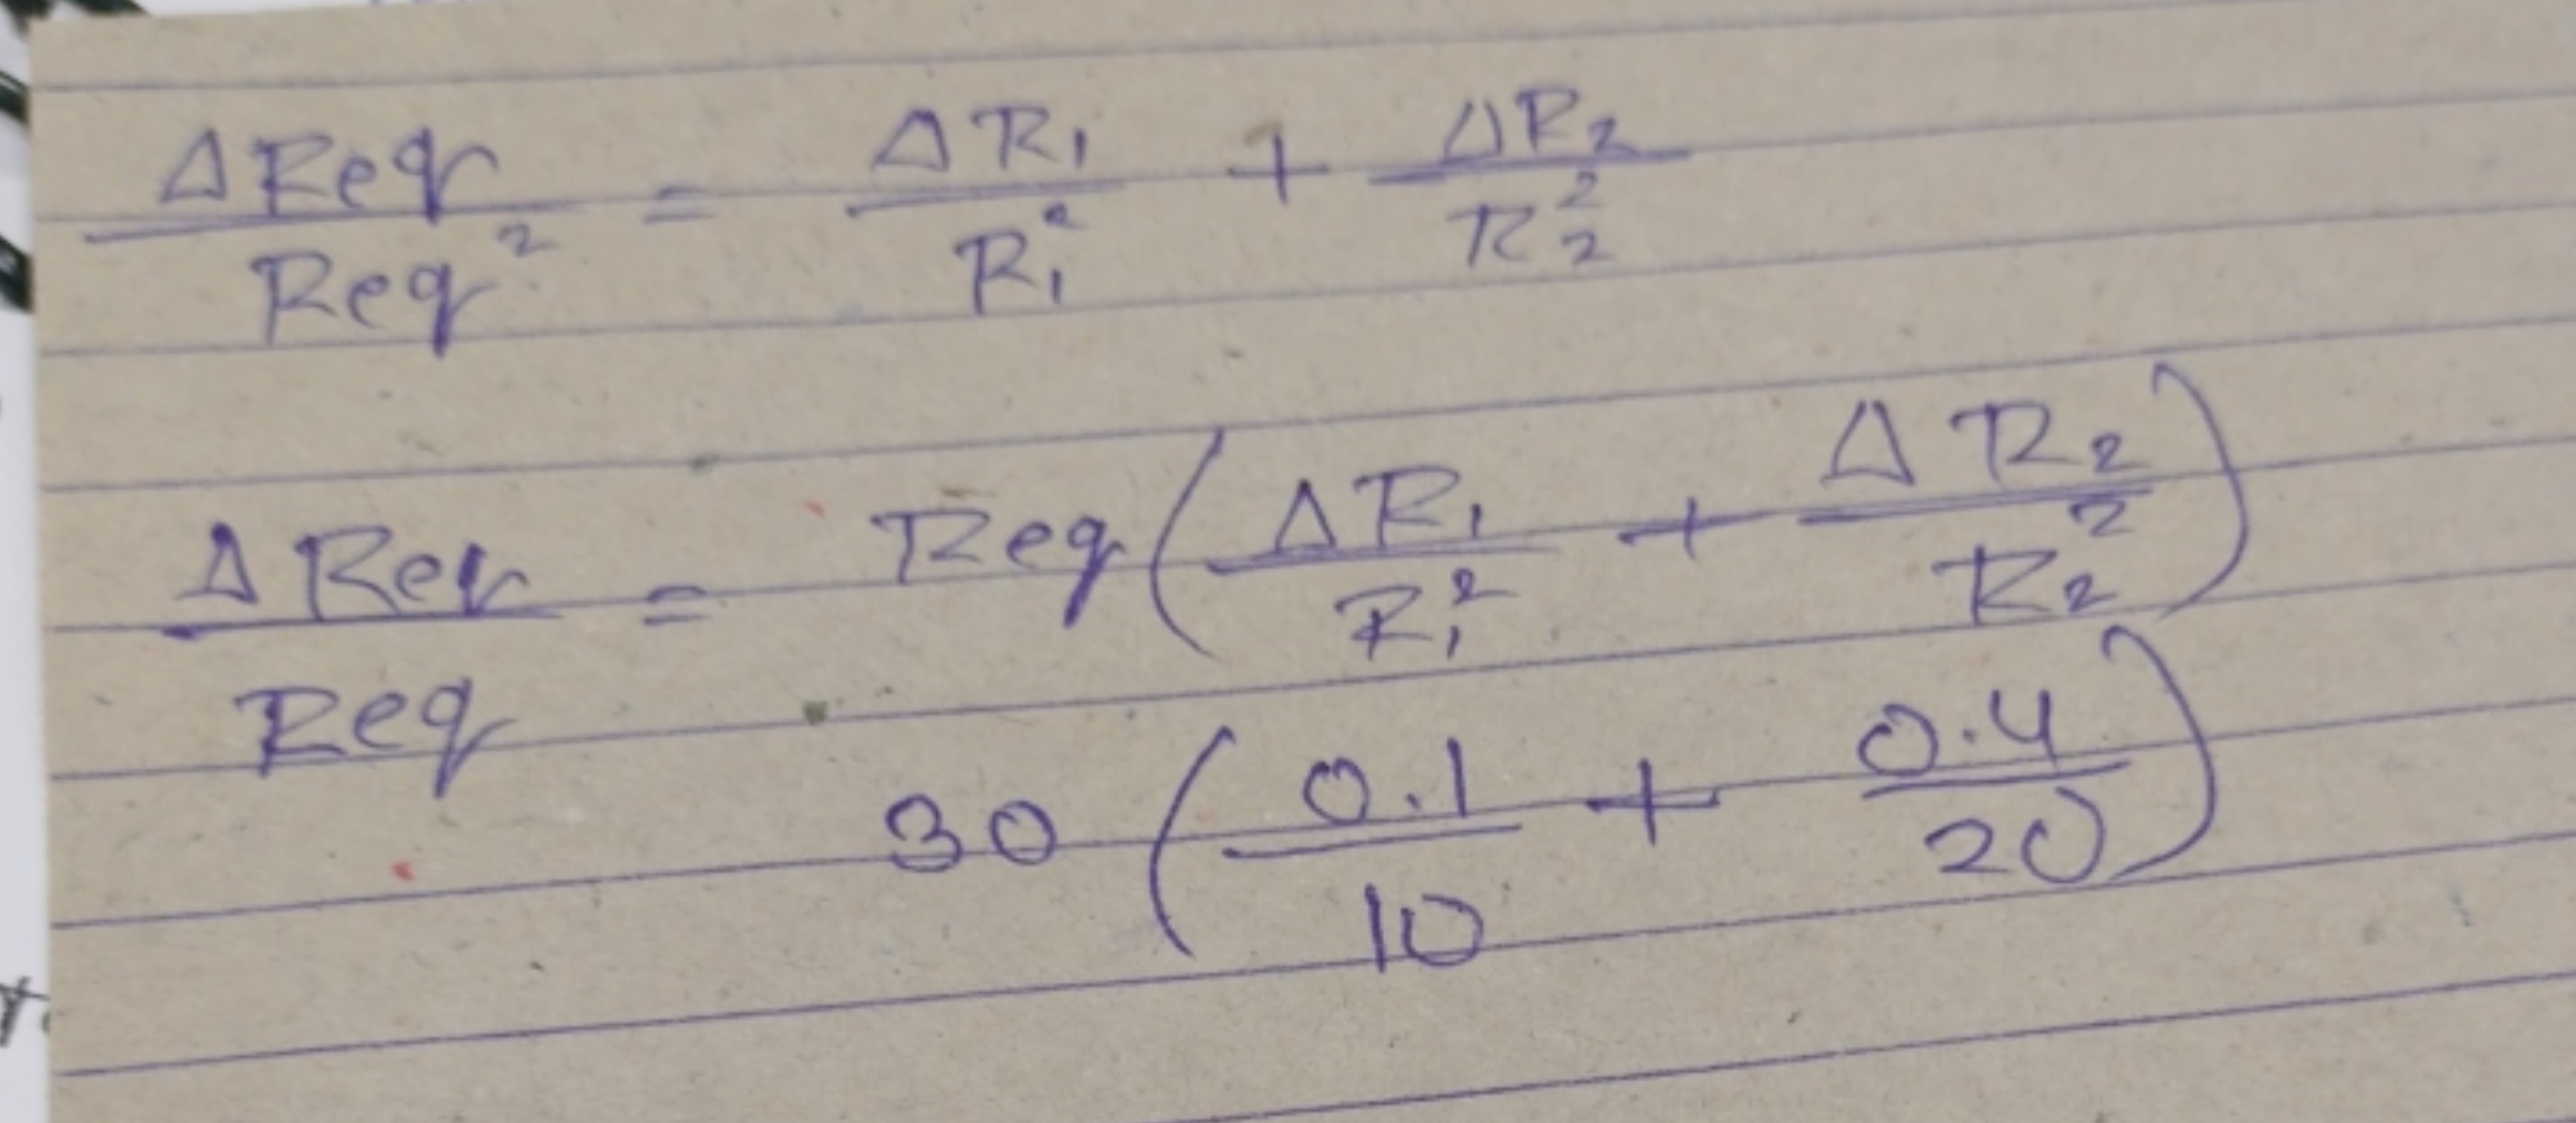 ΔReq/Req² = ΔR₁/R₁² + ΔR₂/R₂²
ΔReq/Req = Req(ΔR₁/R₁² + ΔR₂/R₂²)
30 (0.1/10 + 0.4/20)